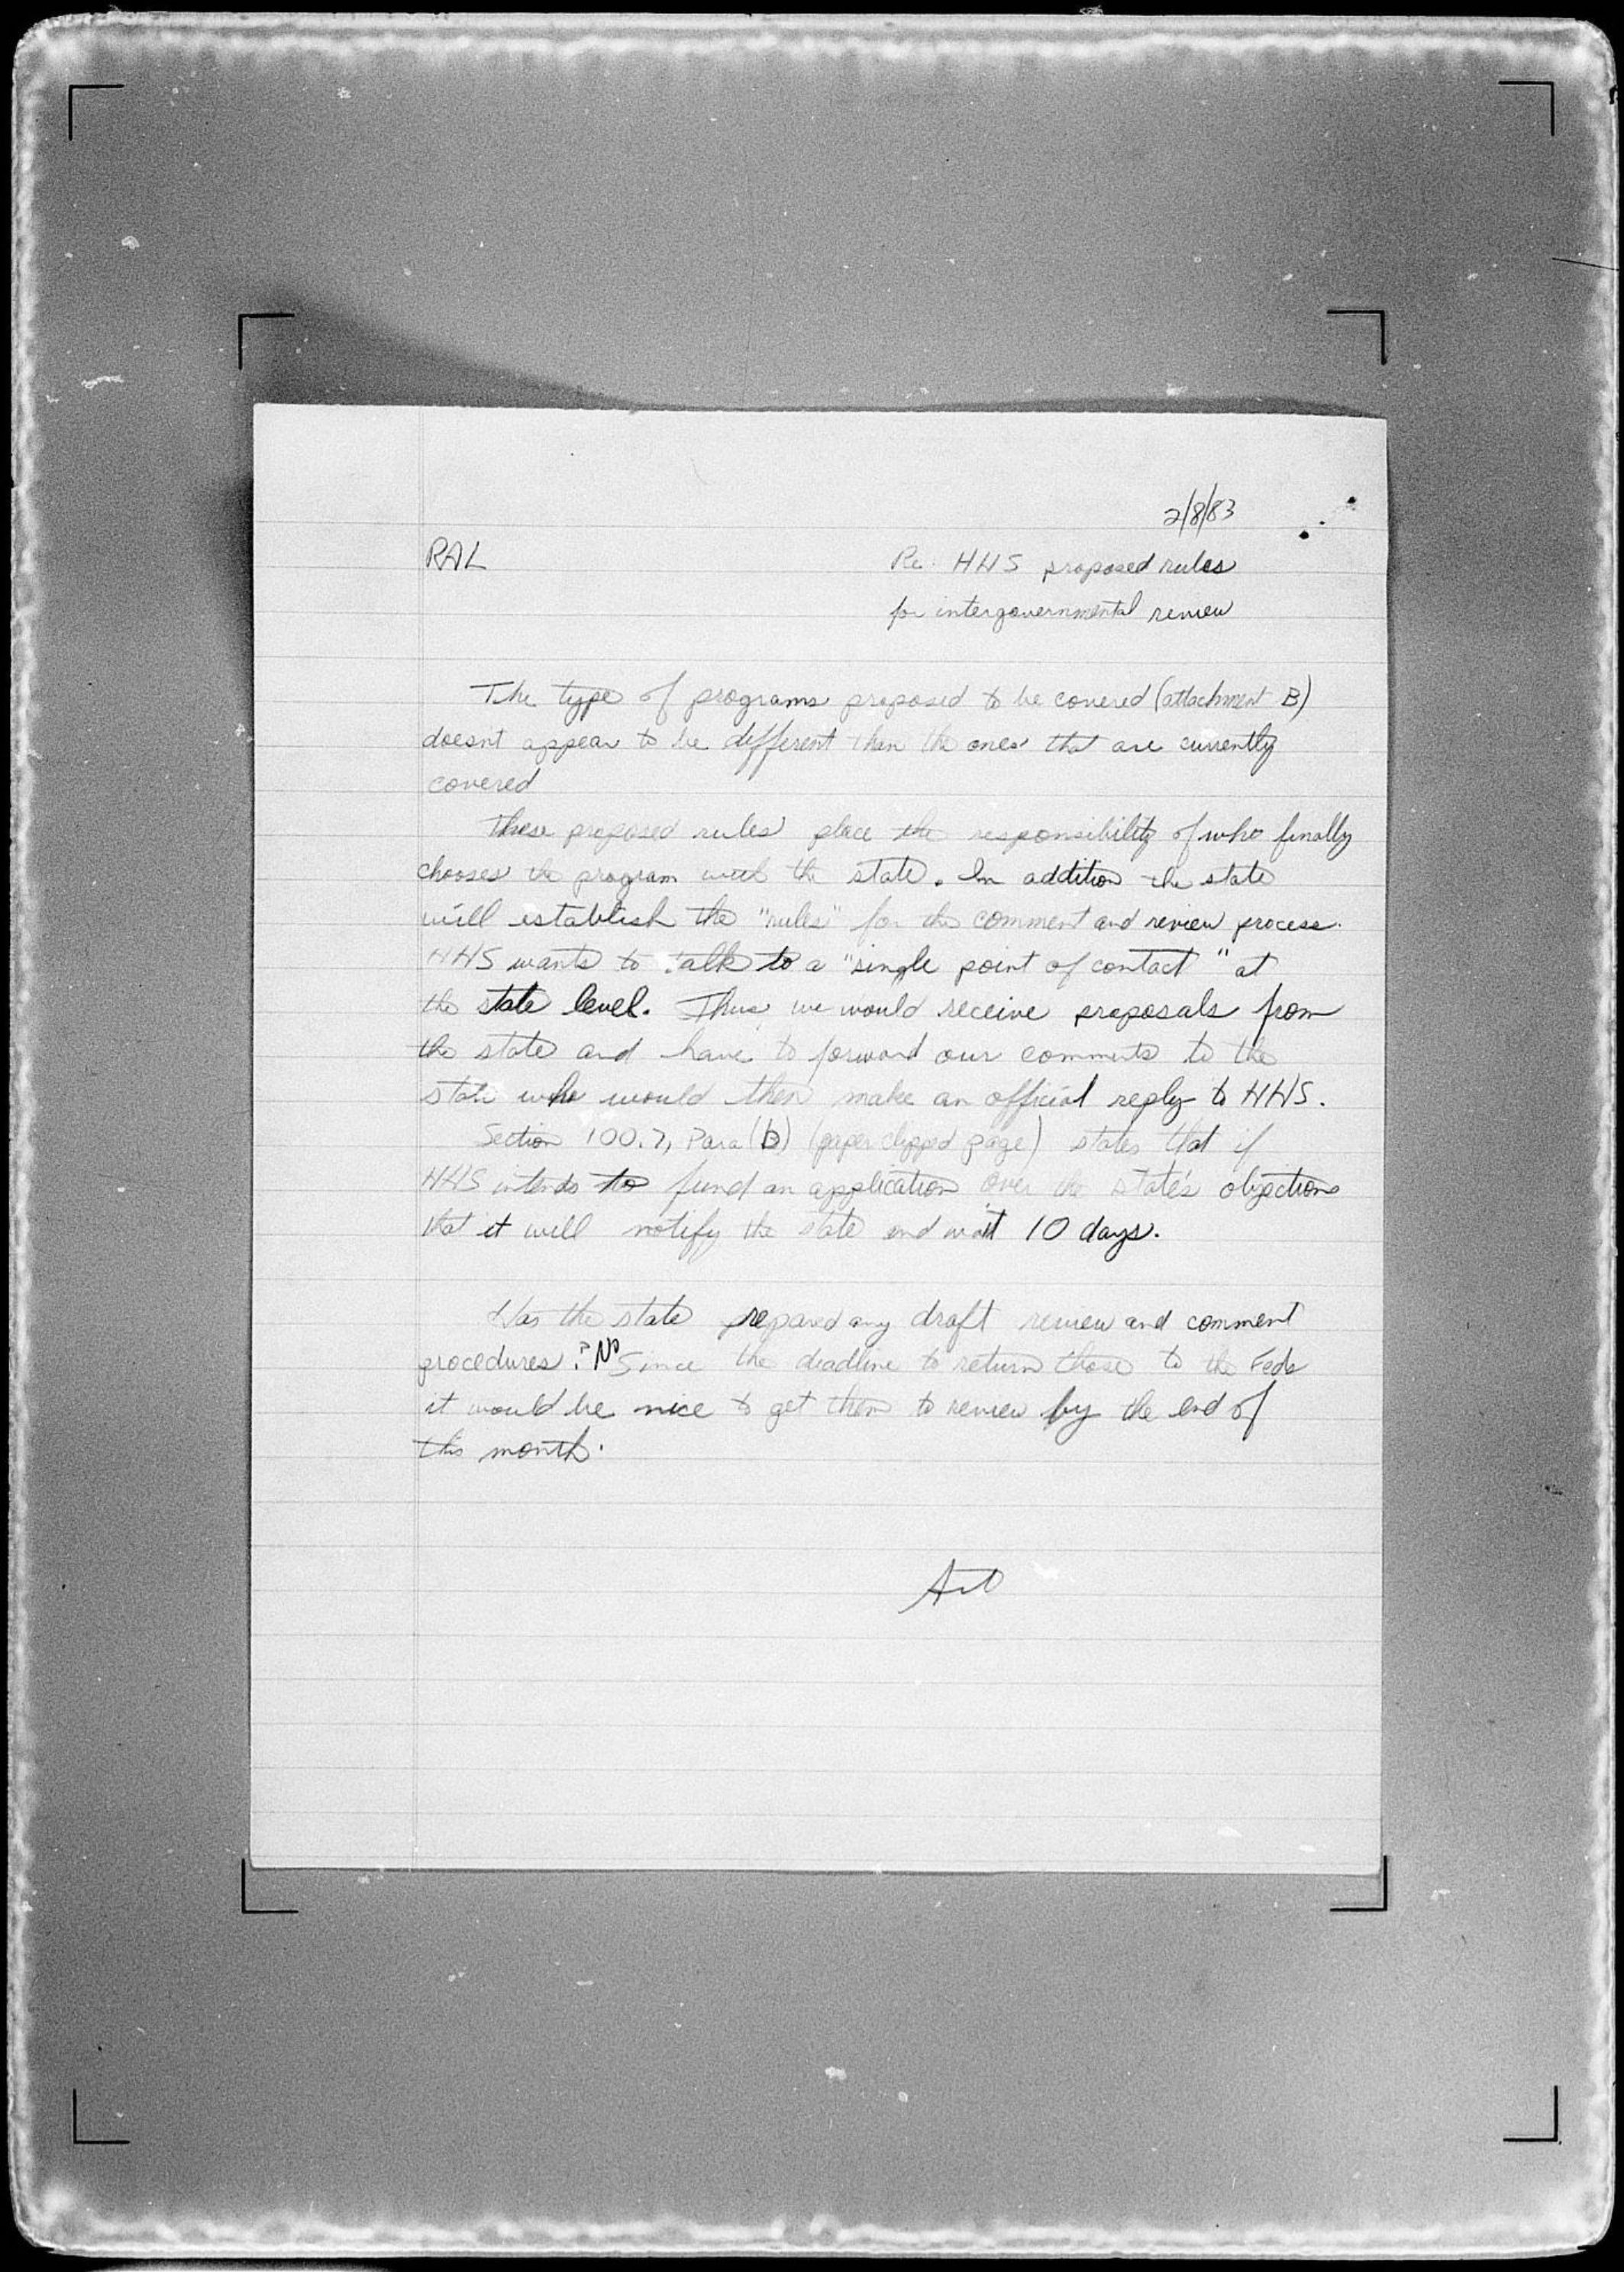 2/8/83
RAL
Re: HHS proposed rules
for intergovernmental review
The type of programs proposed to be covered (attachment B)
doesn't appear to be different than the ones that are currently
covered
These proposed rules place the responsibility of who finally
chooses the program with the state. In addition the state
will establish the "rules" for the comment and review process.
HHS wants to talk to a "single point of contact" at
the state level. Thus, we would receive proposals from
the state and have to forward our comments to the
state who would then make an official reply to HHS.
Section 100.7, Para (b) (paper clipped page) states that if
HHS intends to fund an application over the state's objections
that it will notify the state and wait 10 days.
Has the state prepared any draft review and comment
procedures? No Since the deadline to return those to the Feds
it would be nice to get them to review by the end of
this month.
Art